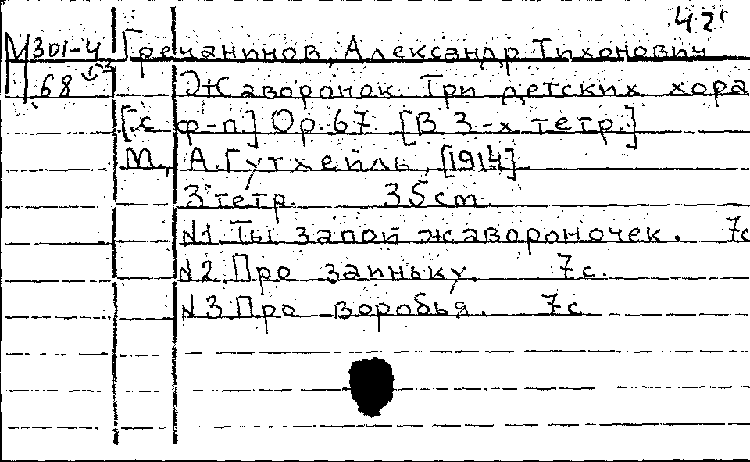 42
М 301-4 Гречанинов, Александр Тихонович
68 Жаворонок. Три детских хора
[с ф-п.] Ор. 67 [В 3-х тетр.]
М., А. Гутхейль, [1914].
3 тетр. 35 cm
№1. Ты запой жавороночек. 7с
№2. Про заиньку. 7с.
№3. Про воробья. 7с